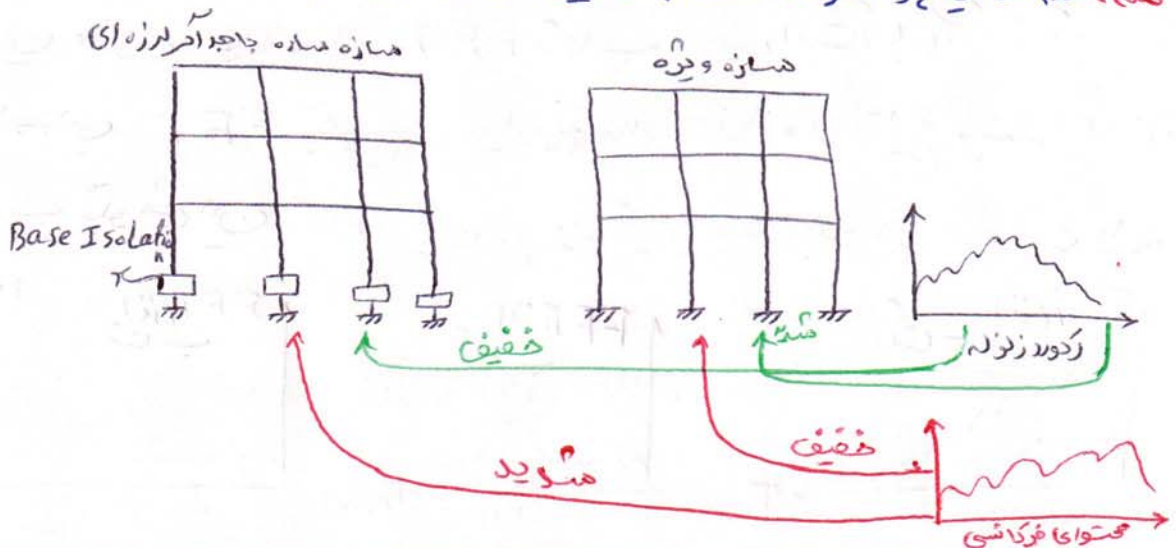 سازه ساده با جداگر لرزه ای
سازه ویژه
Base Isolation
خفیف
رکورد زلزله
خفیف
شدید
محتوای فرکانسی